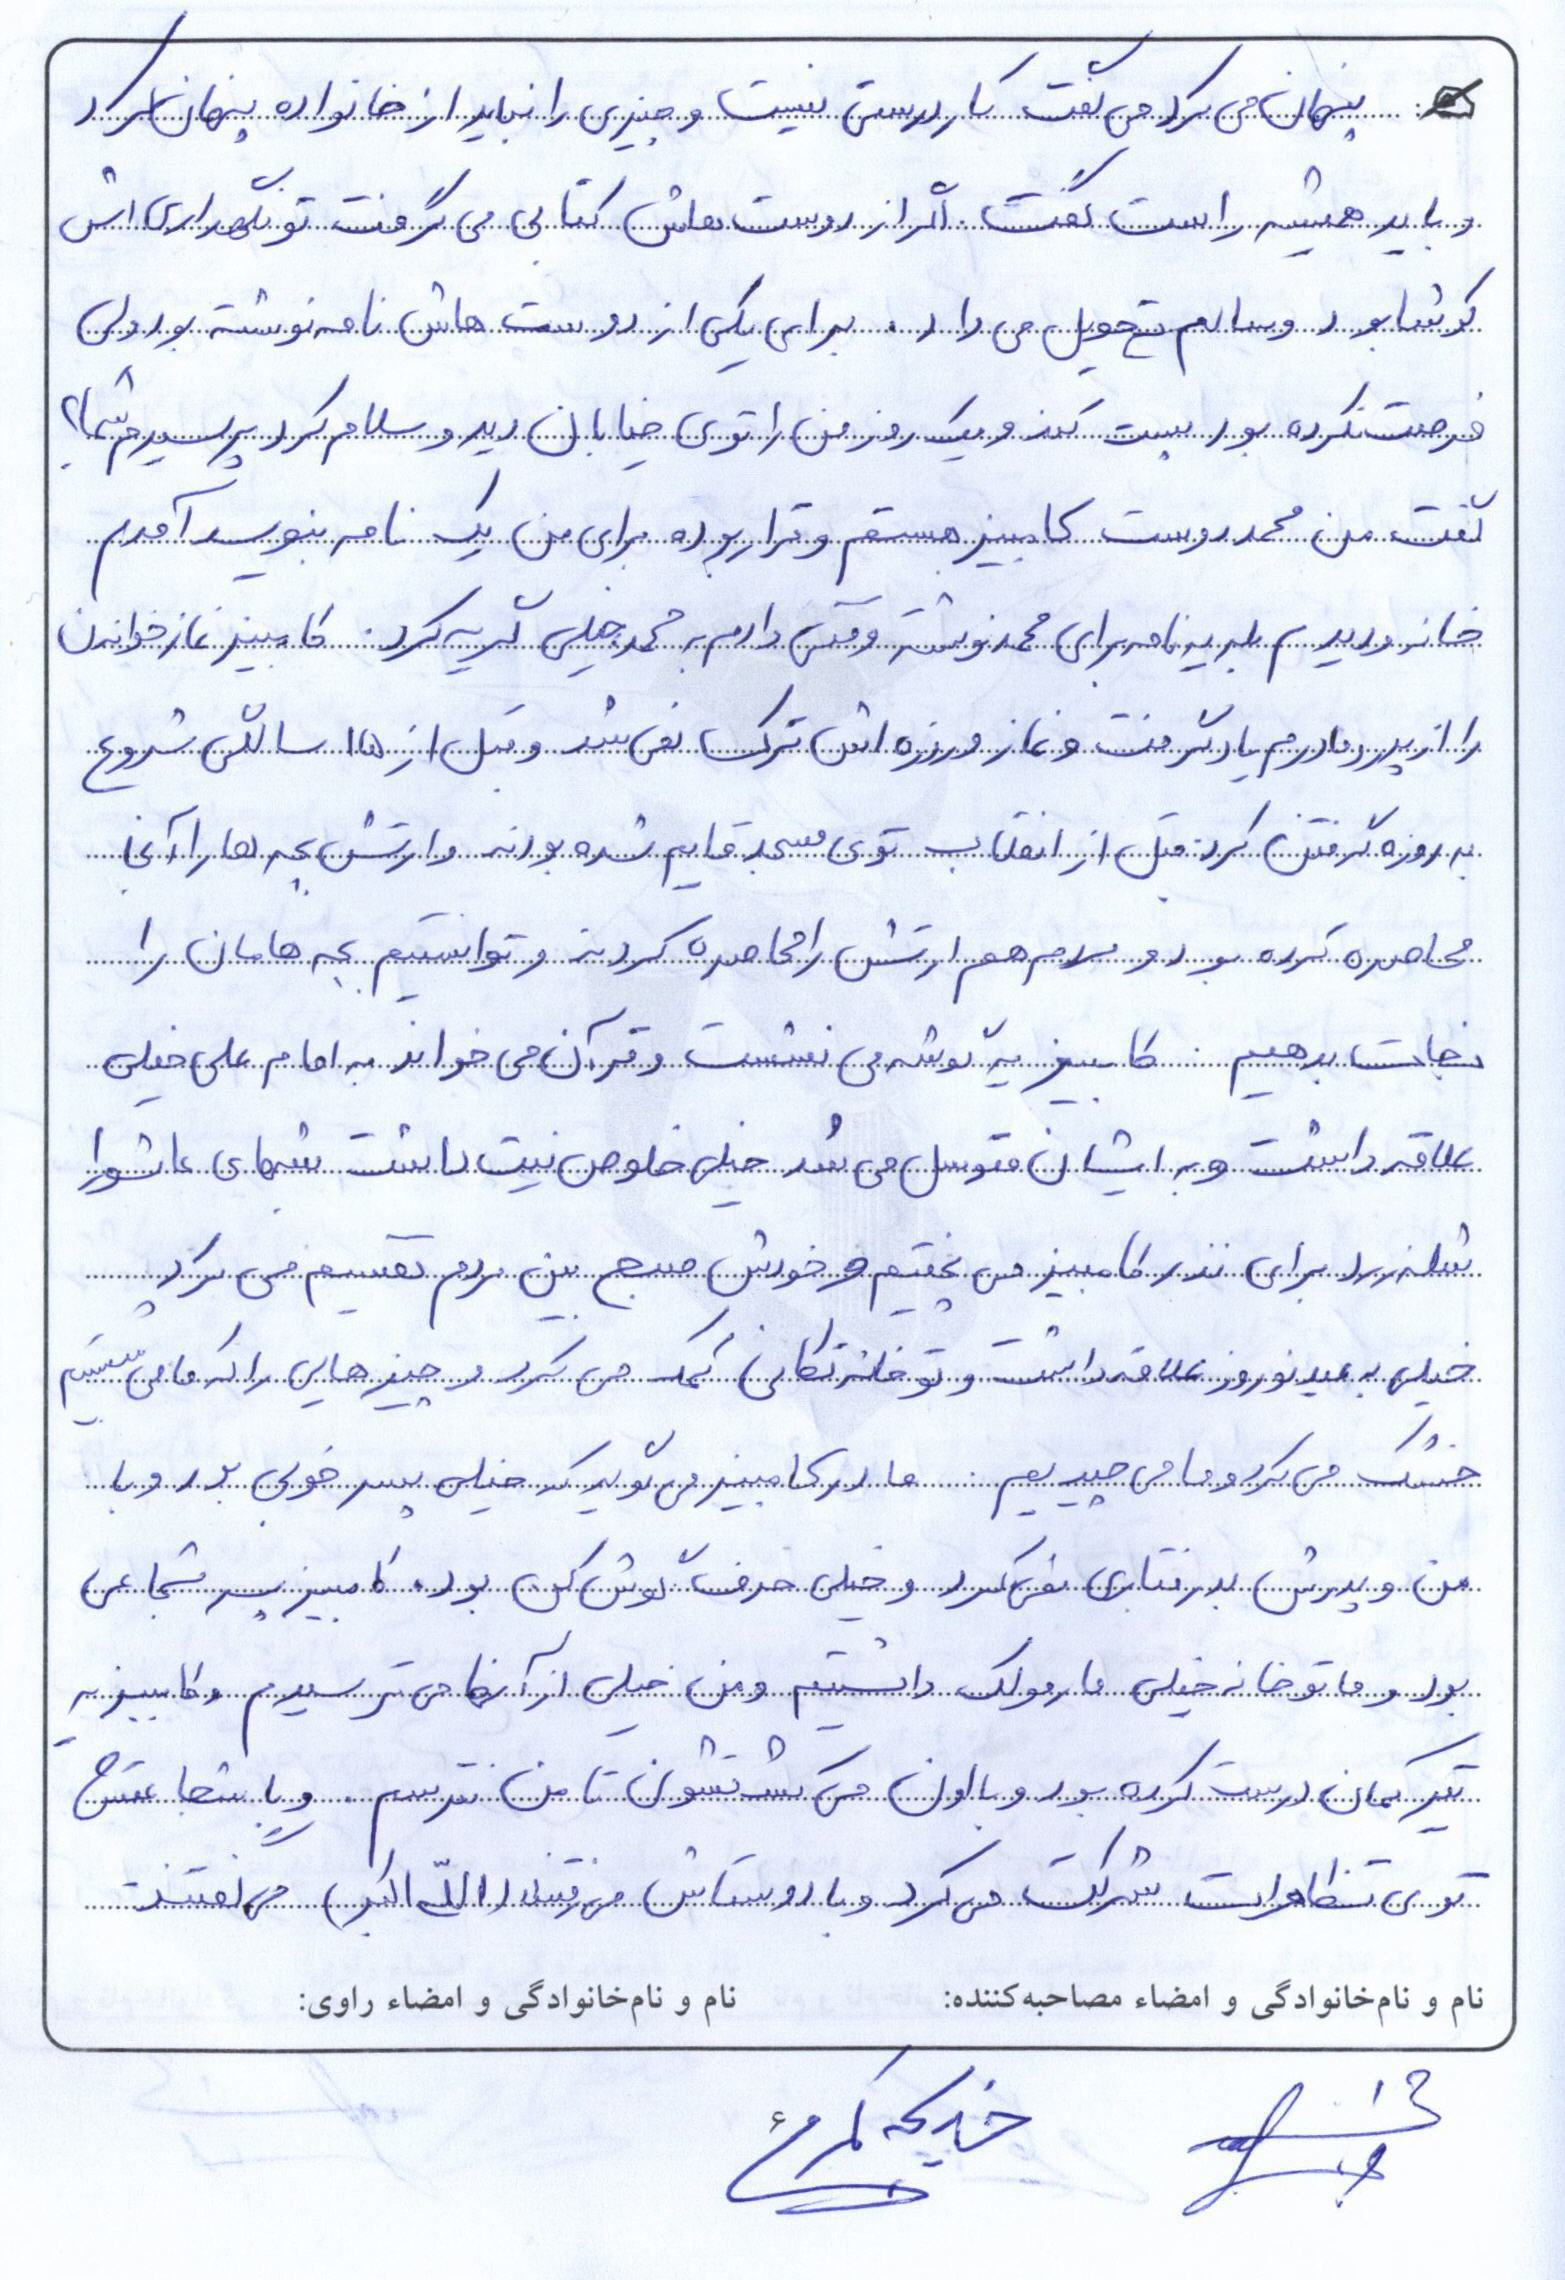 پنهان می کرد می گفت کار درستی نیست و چیزی را نباید از خانواده پنهان کرد
و باید همیشه راست گفت. اگر از دوست هاش کتابی می گرفت تو نگهداری اش
کوشا بود و سالم تحویل می داد. برای یکی از دوست هاش نامه نوشته بود ولی
فرصت نکرده بود پست کند و یک روز من را توی خیابان دید و سلام کرد پرسیدم شما؟
گفت من محمد دوست کامبیز هستم و قرار بوده برای من یک نامه بنویسد آمدم
خانه و دیدم بله یه نامه برای محمد نوشته وقتی دادم به محمد خیلی گریه کرد. کامبیز نماز خواندن
را از پدر و مادرم یاد گرفت و نماز و روزه اش ترک نمی شد و قبل از ۱۵ سالگی شروع
به روزه گرفتن کرد. قبل از انقلاب توی مسجد قایم شده بودند و ارتش بچه ها را آنجا
محاصره کرده بود و مردم هم ارتش را محاصره کردند و توانستیم بچه هامان را
نجات بدهیم. کامبیز یه گوشه می نشست و قرآن می خواند به امام علی خیلی
علاقه داشت و به ایشان متوسل می شد خیلی خلوص نیت داشت شبهای عاشورا
شله زرد برای نذر کامبیز می پختیم و خودش صبح بین مردم تقسیم می کرد
خیلی به عید نوروز علاقه داشت و تو خانه تکانی کمک می کرد و چیزهایی را که ما می شستیم
خشک می کرد و ما می چیدیم. مادر کامبیز می گوید که خیلی پسر خوبی بود و با
من و پدرش بدرفتاری نمی کرد و خیلی حرف گوش کن بود. کامبیز پسر شجاعی
بود و ما تو خانه خیلی مارمولک داشتیم و من خیلی از آنها می ترسیدم و کامبیز یه
تیرکمان درست کرده بود و با اون می کشتشون تا من نترسم. و با شجاعتش
توی تظاهرات شرکت می کرد و با دوستاش می رفتند (الله اکبر) می گفتند
نام و نام‌خانوادگی و امضاء مصاحبه‌کننده: نام و نام‌خانوادگی و امضاء راوی:
خدیجه